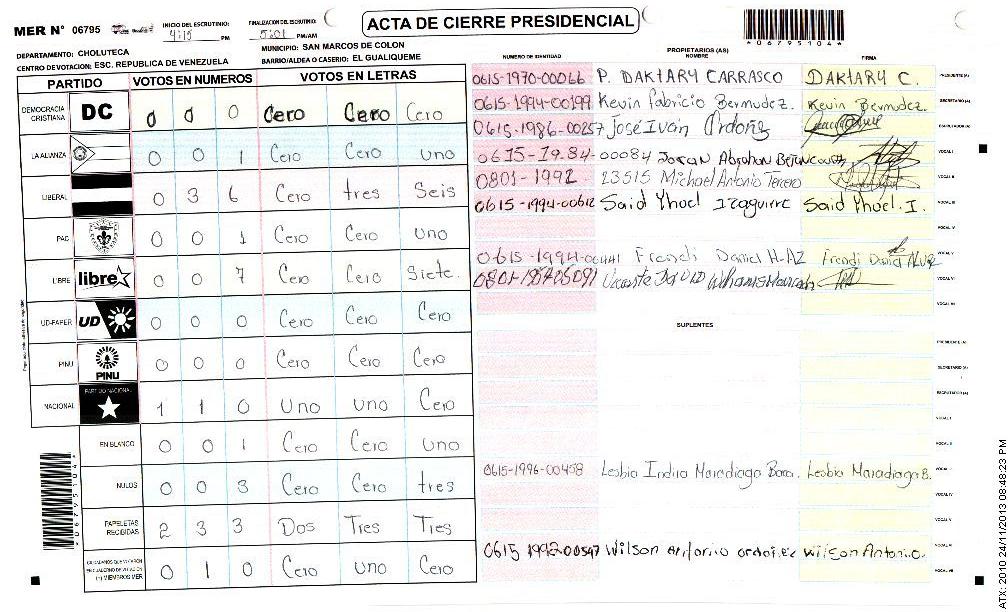 MER N° 06795
INICIO DEL ESCRUTINIO: 4:15 PM
FINALIZACION DEL ESCRUTINIO: 5:01 PM/AM
ACTA DE CIERRE PRESIDENCIAL
*06795104*
DEPARTAMENTO: CHOLUTECA
MUNICIPIO: SAN MARCOS DE COLON
CENTRO DE VOTACION: ESC. REPUBLICA DE VENEZUELA
BARRIO/ALDEA O CASERIO: EL GUALIQUEME
PARTIDO VOTOS EN NUMEROS VOTOS EN LETRAS
DEMOCRACIA CRISTIANA DC 0 0 0 Cero Cero Cero
LA ALIANZA 0 0 1 Cero Cero uno
LIBERAL 0 3 6 Cero tres Seis
PAC 0 0 1 Cero Cero uno
LIBRE libre 0 0 7 Cero Cero Siete.
UD-FAPER UD 0 0 0 Cero Cero Cero
PINU PINU 0 0 0 Cero Cero Cero
NACIONAL PARTIDO NACIONAL 1 1 0 uno uno Cero
EN BLANCO 0 0 1 Cero Cero uno
NULOS 0 0 3 Cero Cero tres
PAPELETAS RECIBIDAS 2 3 3 Dos Tres Tres
CIUDADANOS QUE VOTARON EN CUADERNO DE VOTACION (+) MIEMBROS MER 0 1 0 Cero uno Cero
*06795104*
PROPIETARIOS (AS)
NUMERO DE IDENTIDAD NOMBRE FIRMA
0615-1970-00066 P. DAKTARY CARRASCO DAKTARY C. PRESIDENTE (A)
0615-1994-00199 Kevin Fabricio Bermudez. Kevin Bermudez. SECRETARIO (A)
0615-1986-00257 José Iván Ordoñez ESCRUTADOR (A)
0615-1984-00084 Joran Abrahan Betancourt VOCAL I
0801-1992 23515 Michael Antonio Tercero VOCAL II
0615-1994-00612 Said Yhoel Izaguirre Said Yhoel. I. VOCAL III
VOCAL IV
0615-1994-00441 Frendi Daniel VOCAL V
VOCAL VI
VOCAL VII
SUPLENTES
PRESIDENTE (A)
SECRETARIO (A)
ESCRUTADOR (A)
VOCAL I
VOCAL II
0615-1996-00458 Lesbia Indira Maradiaga Lesbia Maradiaga B. VOCAL III
VOCAL IV
VOCAL V
0615 1992-00547 Wilson Antonio ordoñez Wilson Antonio.O. VOCAL VI
VOCAL VII
ATX: 2010 24/11/2013 08:48:23 PM